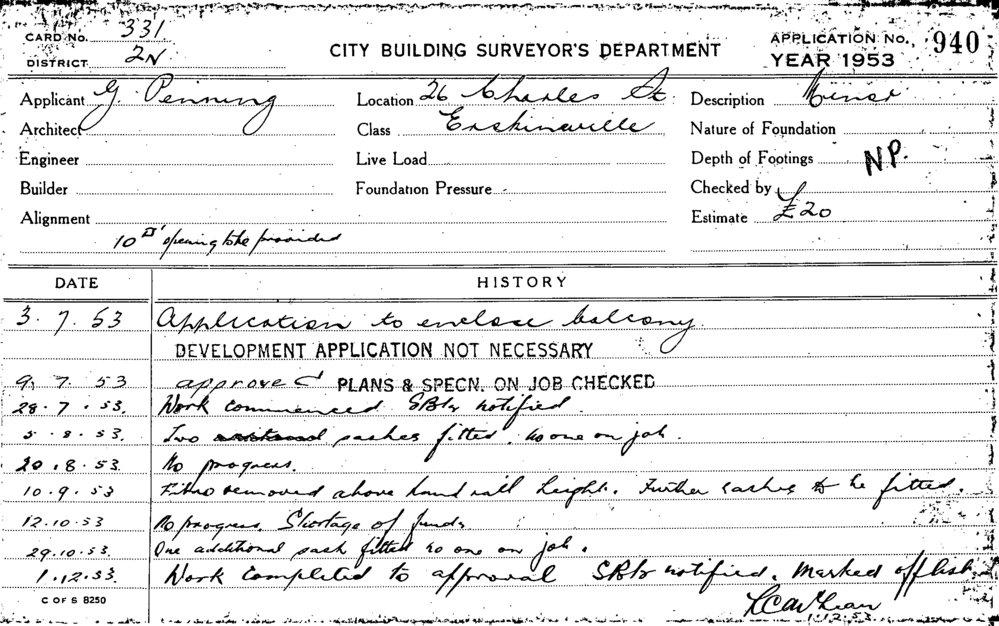 CARD No. 331
DISTRICT 2N
CITY BUILDING SURVEYOR'S DEPARTMENT
APPLICATION No. 940
YEAR 1953
Applicant G. Penning
Location 26 Charles St.
Description Minor
Architect
Class Erskineville
Nature of Foundation
Engineer
Live Load
Depth of Footings NP.
Builder
Foundation Pressure
Checked by
Alignment
Estimate £20
10 opening to be provided
DATE HISTORY
3.7.53 Application to enclose balcony.
DEVELOPMENT APPLICATION NOT NECESSARY
9.7.53 approved PLANS & SPECN. ON JOB CHECKED
28.7.53. Work commenced notified.
5.8.53. Two sashes fitted. No one on job.
20.8.53 No progress.
10.9.53 Fibro removed above hand rail height. Further sashes to be fitted.
12.10.53 No progress. Shortage of funds
29.10.53. One additional sash fitted no one on job.
1.12.53. Work completed to approval notified. Marked off list.
1.12.53
C OF S 8250